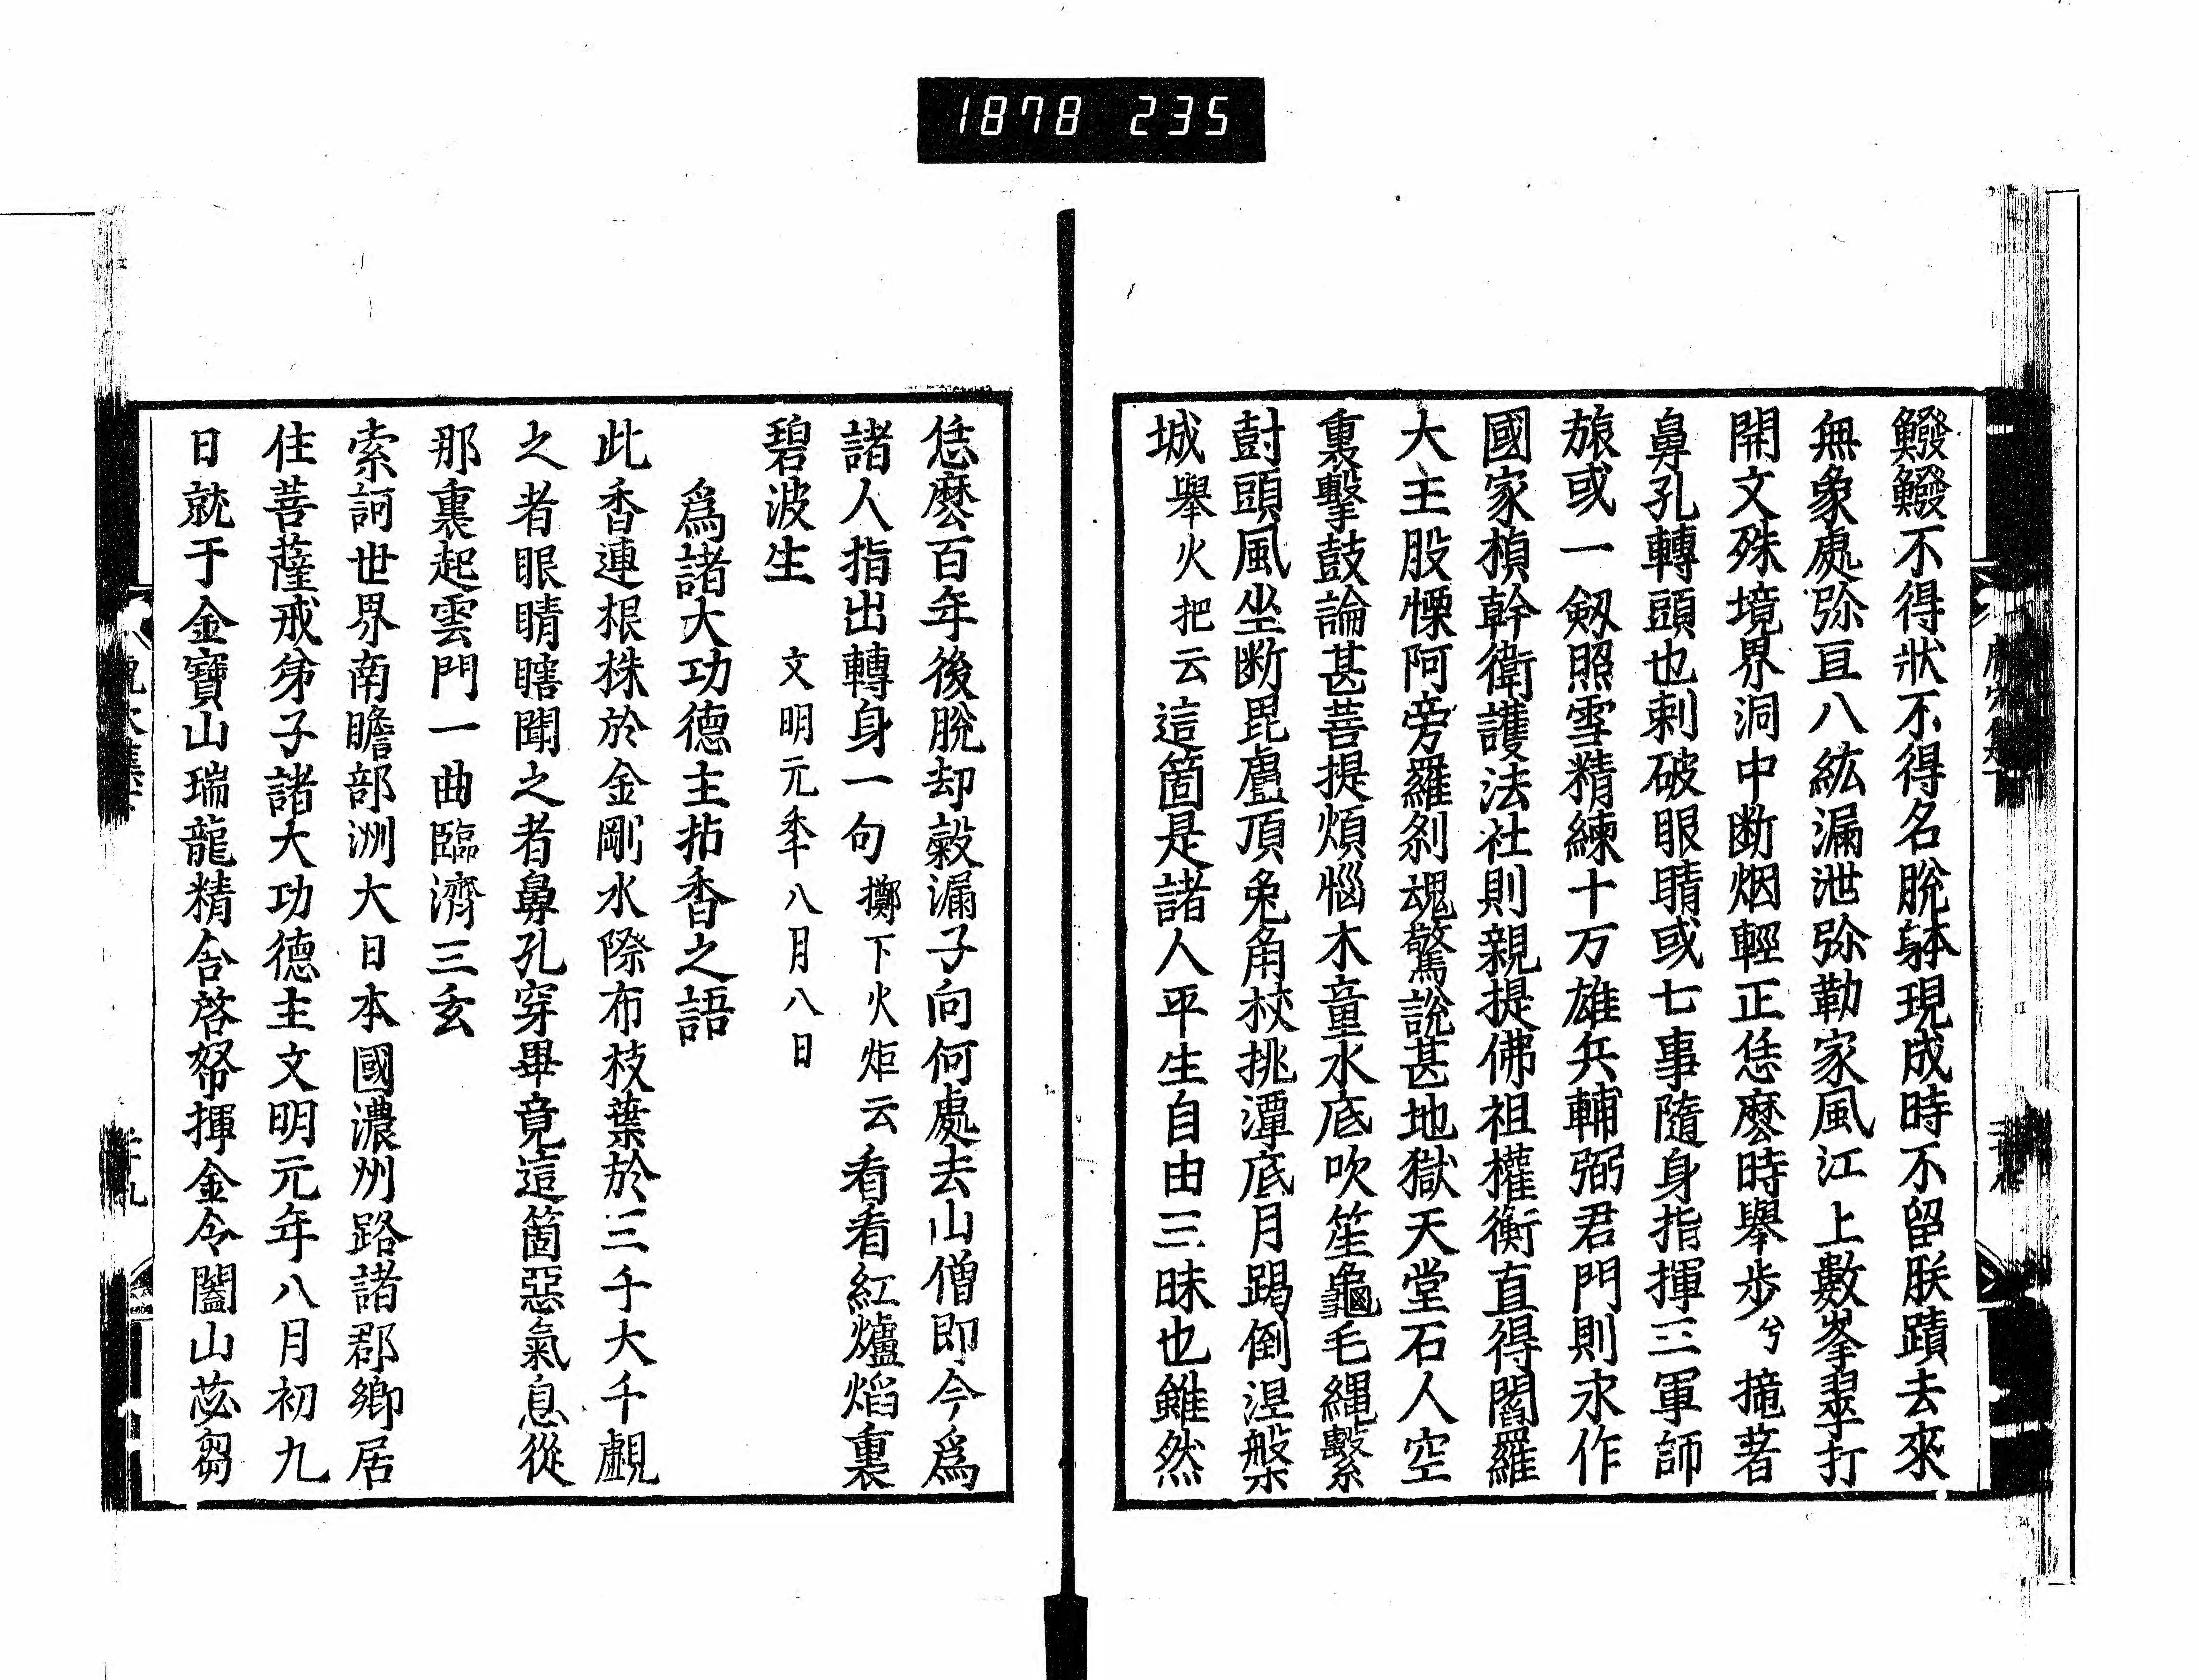 1878 235
鱍鱍不得狀不得名脫躰現成時不留朕蹟去來
無象處弥亘八紘漏泄弥勒家風江上數峯翠打
開文殊境界洞中断烟輕正恁麽時舉步兮擡著
鼻孔轉頭也刺破眼睛或七事隨身指揮三軍師
旅或一劔照雪精練十万雄兵輔弼君門則永作
國家楨幹衛護法社則親提佛祖權衡直得閻羅
大主股慄阿旁羅刹魂驚說甚地獄天堂石人空
裏擊鼓論甚菩提煩惱木童水底吹笙龜毛繩繫
封頭風坐断毘盧頂兎角杖挑潭底月踢倒涅槃
城舉火把云這箇是諸人平生自由三昧也雖然
恁麽百年後脫却穀漏子向何處去山僧即今爲
諸人指出轉身一句擲下火炬云看看紅爐焰裏
碧波生 文明元年八月八日
爲諸大功德主拈香之語
此香連根株於金剛水際布枝葉於三千大千覰
之者眼睛瞎聞之者鼻孔穿畢竟這箇惡氣息從
那裏起雲門一曲臨濟三玄
索訶世界南瞻部洲大日本國濃州路諸郡鄉居
住菩薩戒弟子諸大功德主文明元年八月初九
日就于金寶山瑞龍精舍啓帑揮金令闔山苾芻